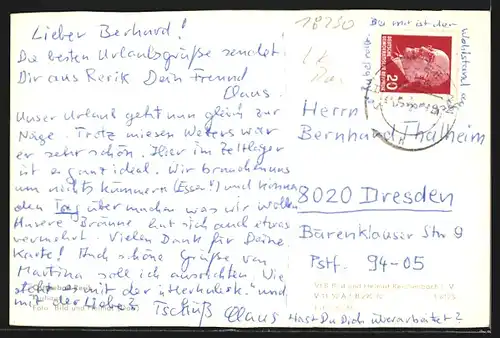 Lieber Berhard!
Die besten Urlaubsgrüße sendet
Dir aus Rerik Dein Freund
Claus.
Unser Urlaub geht nun gleich zur
Neige. Trotz miesen Wetters war
er sehr schön. Hier im Zeltlager
ist es ganz ideal. Wir brauchen uns
um nichts kümmern (Essen!) und können
den Tag über machen was wir wollen
Unsere "Bräune" hat sich auch etwas
vermehrt. Vielen Dank für Deine
Karte! Auch schöne Grüße von
Martina soll ich ausrichten. Wie
steht es mit der "und
mit der Liebe? Tschüß Claus
Hast Du Dich überarbeitet?
18230
Bei mir ist der
Wohlstand
20
Herrn
Bernhard Thalheim
8020 Dresden
Bärenklauser Str 9
Pstf. 94-05
VEB Bild und Heimat Reichenbach i. V.
Foto: Bild und Heimat